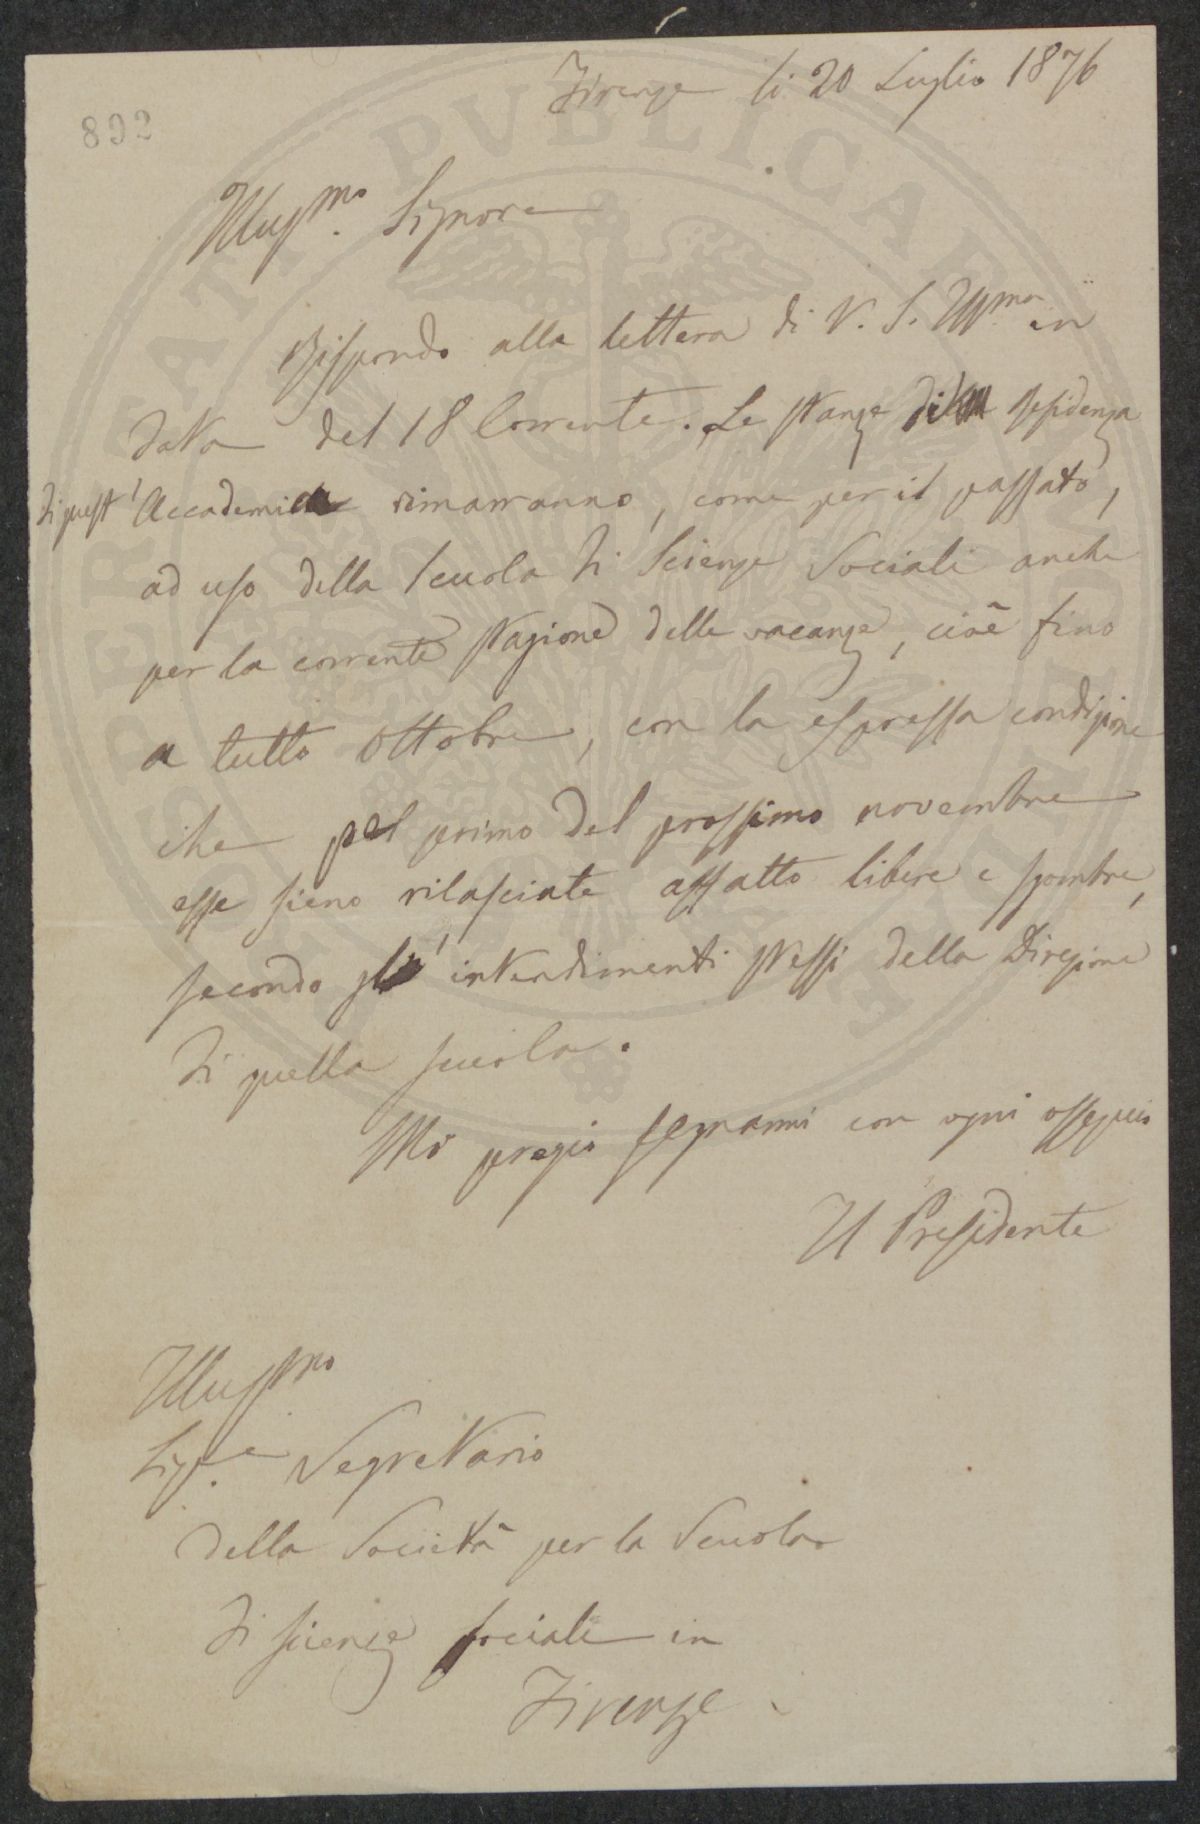 Firenze li 20 Luglio 1876
892
Illus.mo Signore
Rispondo alla lettera di V. S. Ill.ma in
data del 18 Corrente. Le stanze di residenza
di quest'Accademia rimarranno, come per il passato,
ad uso della Scuola di Scienze Sociali anche
per la corrente stagione delle vacanze, cioè fino
a tutto Ottobre, con la espressa condizione
che pel primo del prossimo novembre
esse sieno rilasciate affatto libere e sgombre,
secondo gl'intendimenti stessi della Direzione
di quella scuola.
Mi pregio segnarmi con ogni ossequio
Il Presidente
Illustmo
Sig.e Segretario
della Società per la Scuola
di scienze sociali in
Firenze